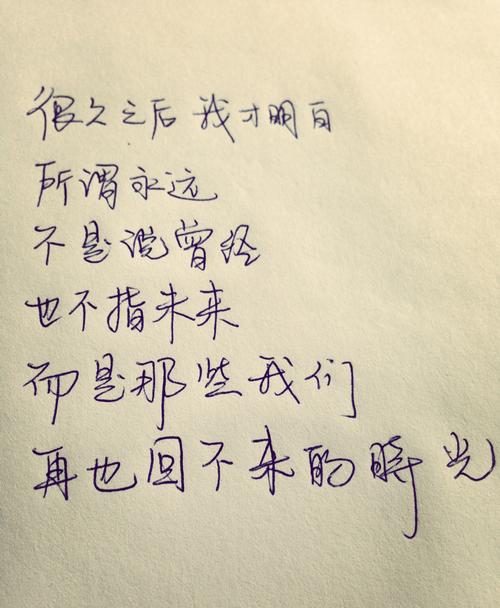 很久之后 我才明白
所谓永远
不是说曾经
也不指未来
而是那些我们
再也回不来的时光